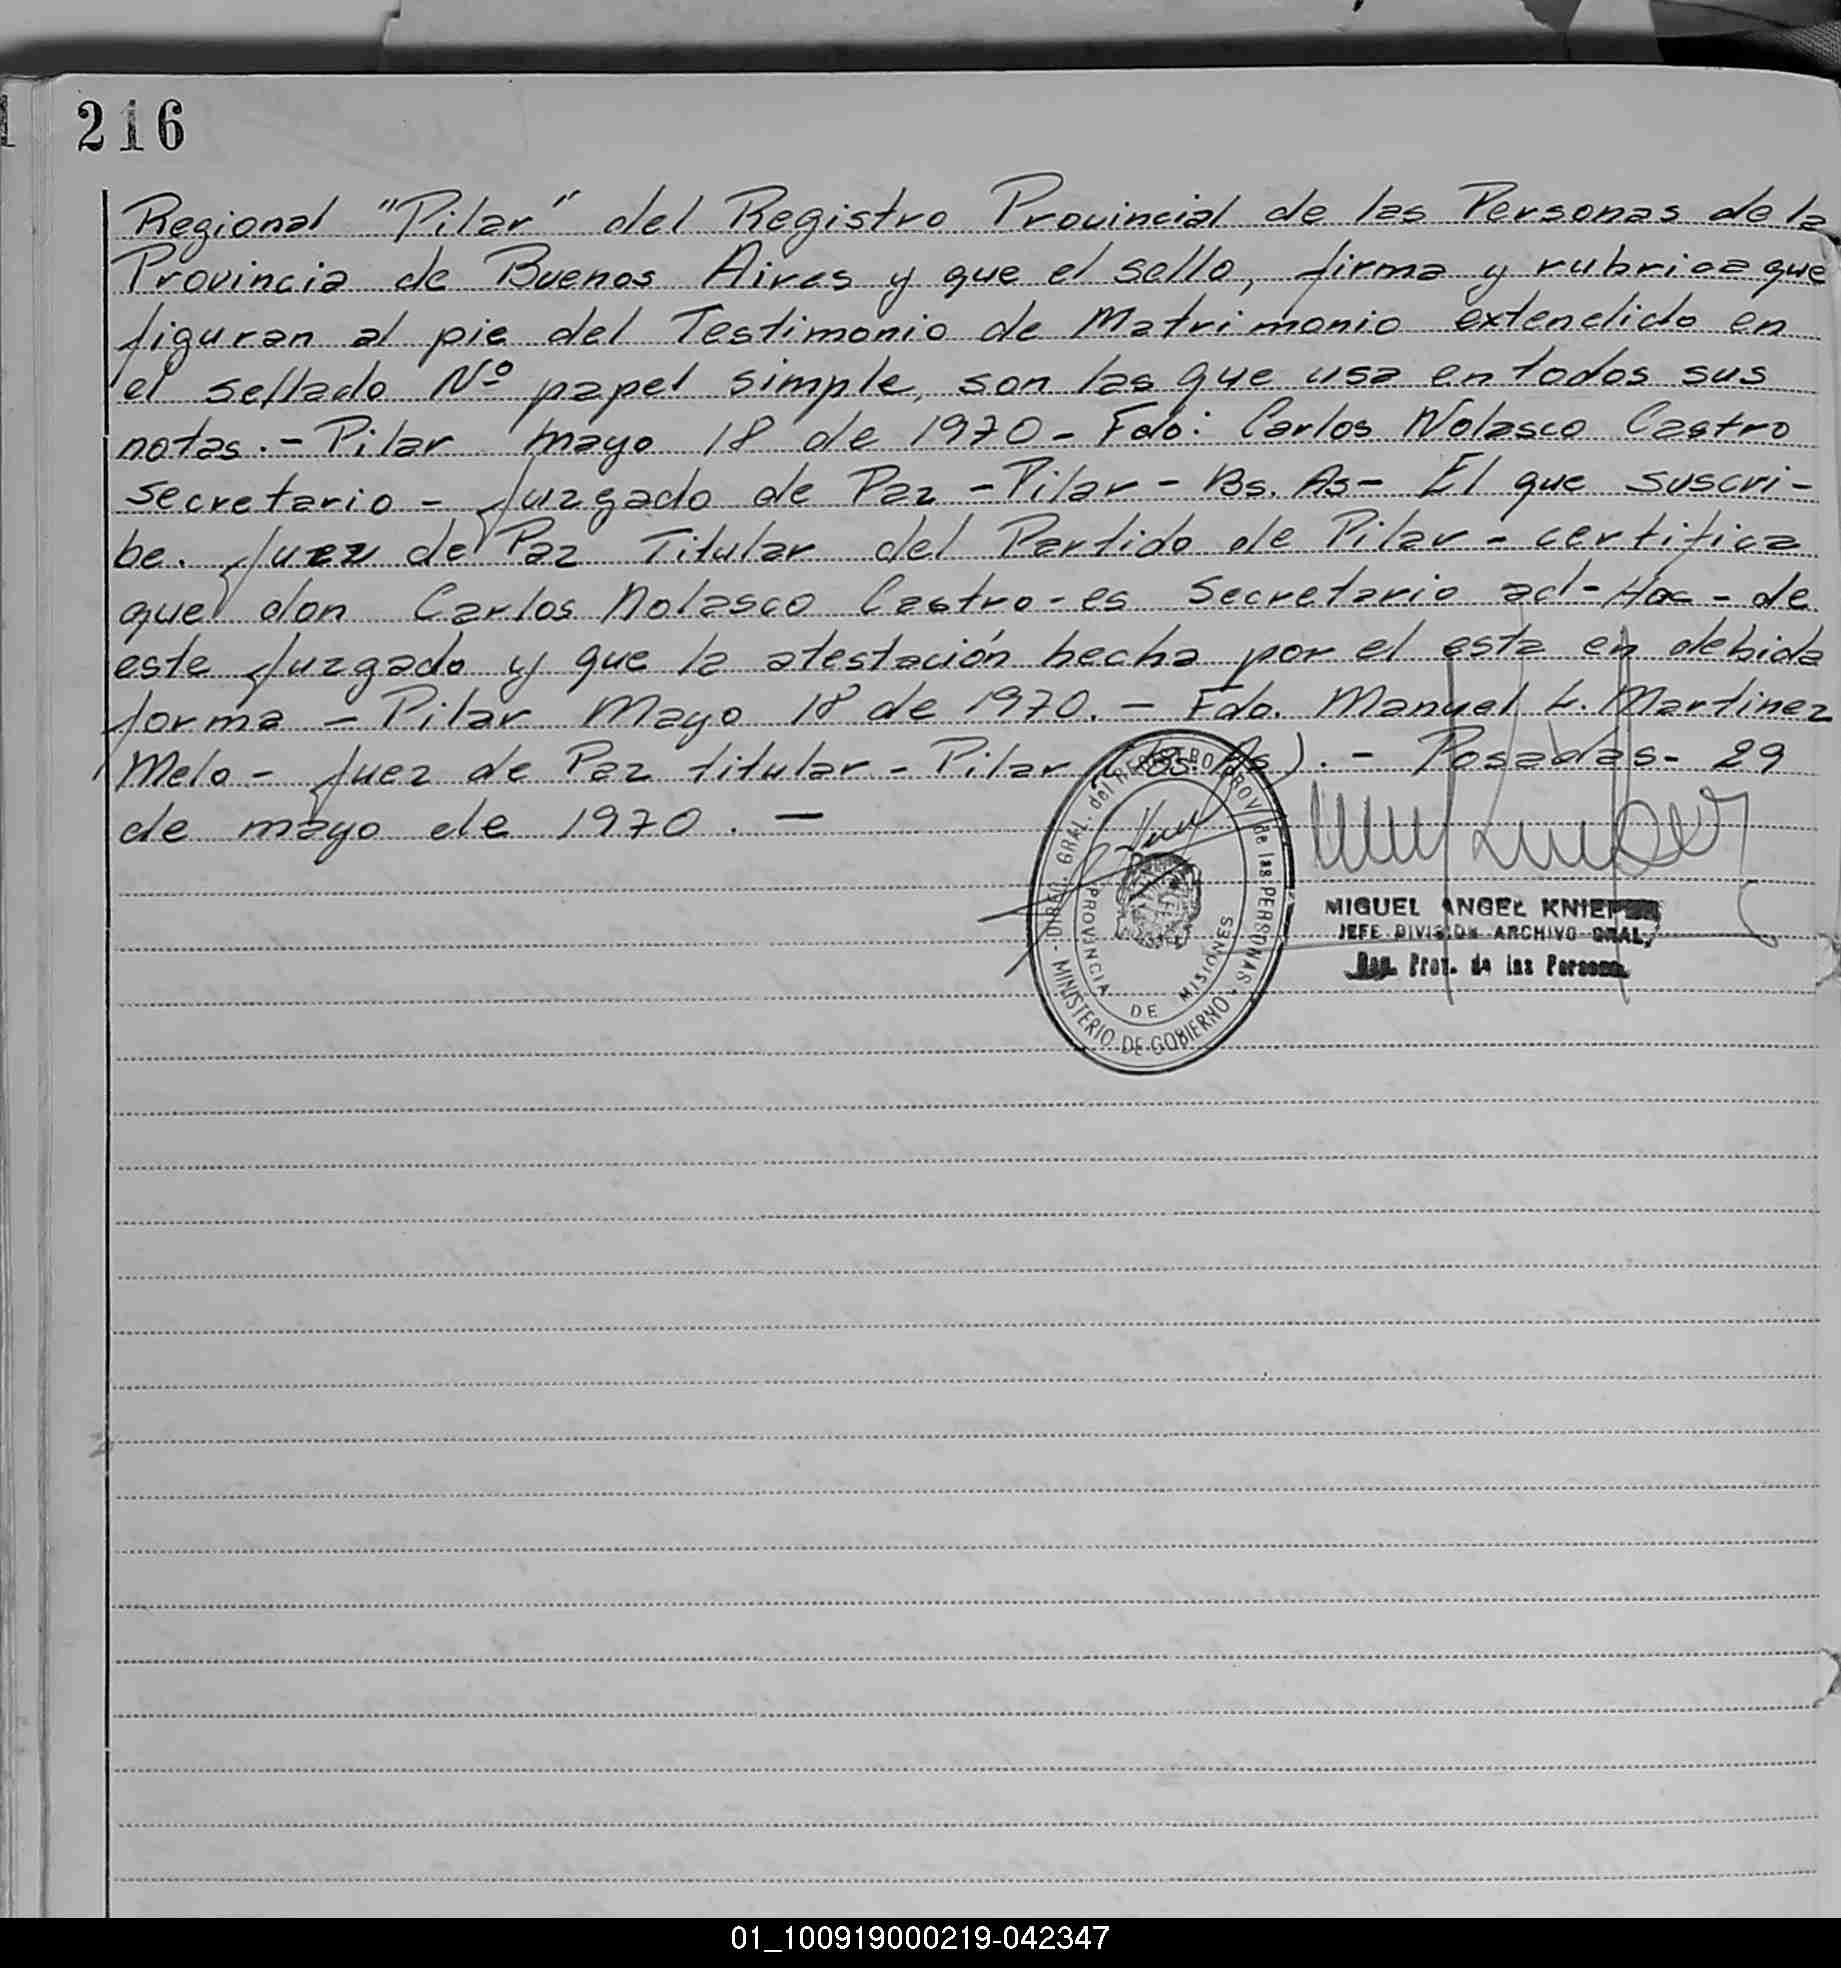 216
Regional "Pilar" del Registro Provincial de las Personas de la
Provincia de Buenos Aires y que el sello, firma y rubrica que
figuran al pie del Testimonio de Matrimonio extendido en
el sellado Nº papel simple, son las que usa en todos sus
notas.- Pilar mayo 18 de 1970- Fdo: Carlos Nolasco Castro
secretario - Juzgado de Paz - Pilar - Bs. As- El que suscri-
be. Juez de Paz Titular del Partido de Pilar - certifica
que don Carlos Nolasco Castro - es Secretario ad-Hoc - de
este Juzgado y que la atestación hecha por el esta en debida
forma - Pilar Mayo 18 de 1970. - Fdo. Manuel L. Martinez
Melo - Juez de Paz titular - Pilar (Bs. As). - Posadas - 29
de mayo de 1970. —
DIREC. GRAL. del REGISTRO PROV. de las PERSONAS
MINISTERIO DE GOBIERNO
PROVINCIA DE MISIONES
MIGUEL ANGEL
JEFE DIVISION ARCHIVO GRAL.
Reg. Prov. de las Personas
01_100919000219-042347